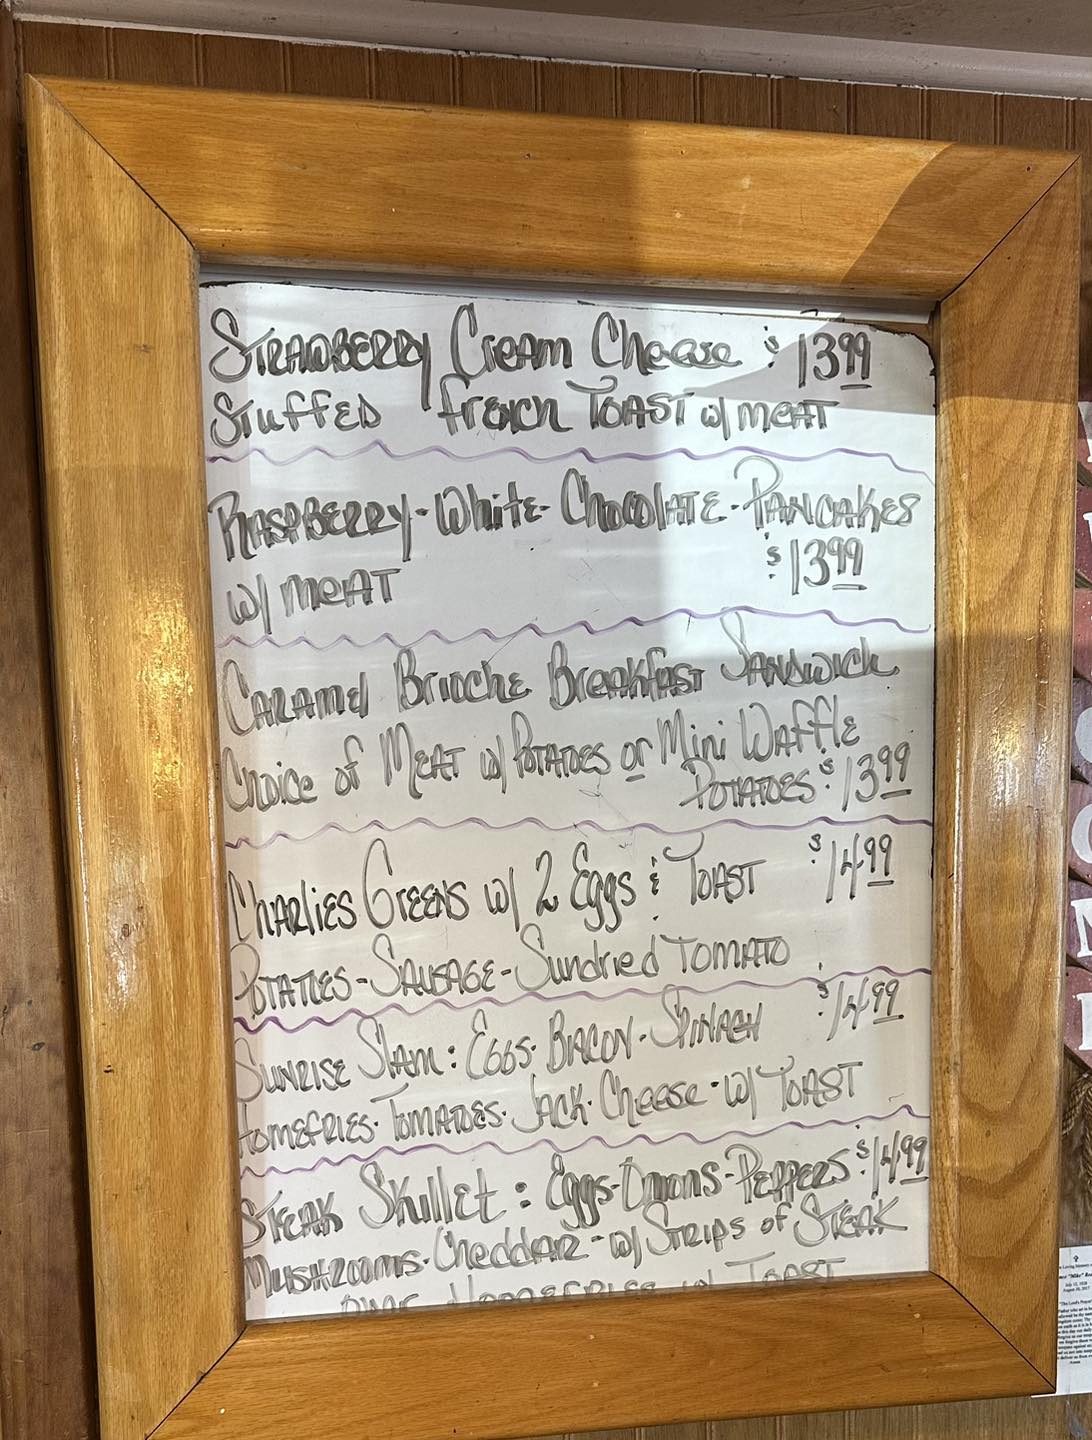 Strawberry Cream Cheese $13.99
Stuffed French Toast w/ meat
Raspberry-White-Chocolate-Pancakes
w/ meat $13.99
Caramel Brioche Breakfast Sandwich
Choice of Meat w/ Potatoes or Mini Waffle
Potatoes $13.99
Charlies Greens w/ 2 Eggs & Toast $14.99
Potatoes-Sausage-Sundried Tomato
Sunrise Slam: Eggs-Bacon-Spinach $14.99
Homefries-Tomatoes-Jack-Cheese-w/ Toast
Steak Skillet: Eggs-Onions-Peppers $14.99
Mushrooms-Cheddar-w/ Strips of Steak
over Homefries w/ Toast